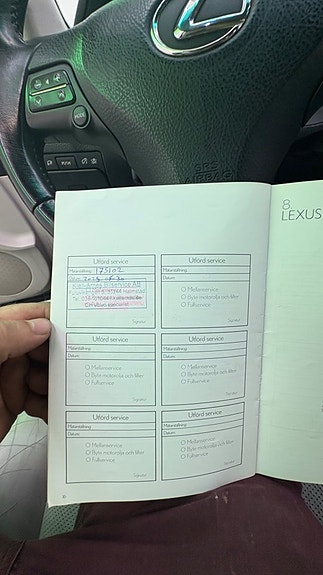 MODE
PUSH
SRS
AIRBAG
8.
LEXUS
Utförd service
Mätarställning: 175102
Datum:
Bilservice AB
Signatur
Utförd service
Mätarställning:
Datum:
O Mellanservice
O Byte motorolja och filter
O Fullservice
Signatur
Utförd service
Mätarställning:
Datum:
O Mellanservice
O Byte motorolja och filter
O Fullservice
Signatur
Utförd service
Mätarställning:
Datum:
O Mellanservice
O Byte motorolja och filter
O Fullservice
Signatur
Utförd service
Mätarställning:
Datum:
O Mellanservice
O Byte motorolja och filter
O Fullservice
Signatur
Utförd service
Mätarställning:
Datum:
O Mellanservice
O Byte motorolja och filter
O Fullservice
Signatur